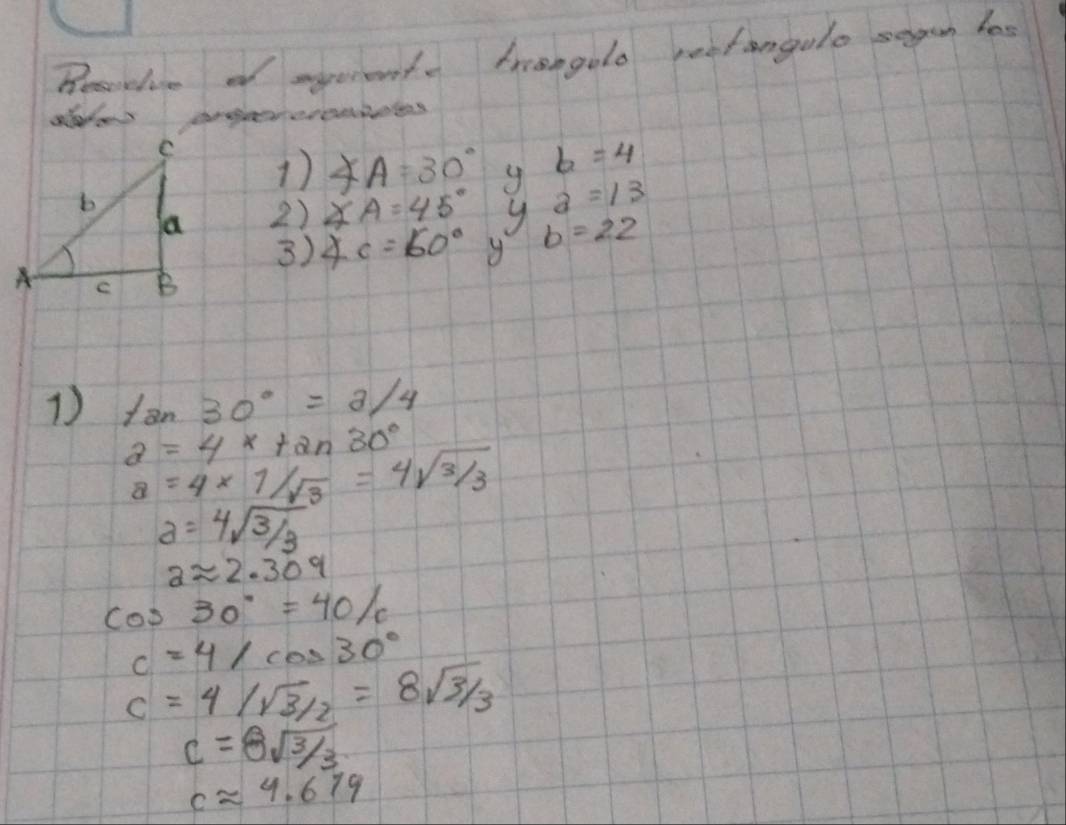 Resuelve el siguiente triangulo rectangulo segun los
datos proporcionados
C
b
a
A
c
B
1) ∡A=30° y b=4
2) ∡A=45° y a=13
3) ∡c=60° y b=22
1) tan 30° = a/4
a = 4 × tan 30°
a = 4 × 1/√3 = 4√3/3
a = 4√3/3
a ≈ 2.309
cos 30° = 40/c
c = 4 / cos 30°
c = 4 /√3/2 = 8√3/3
c = 8√3/3
c ≈ 4.619